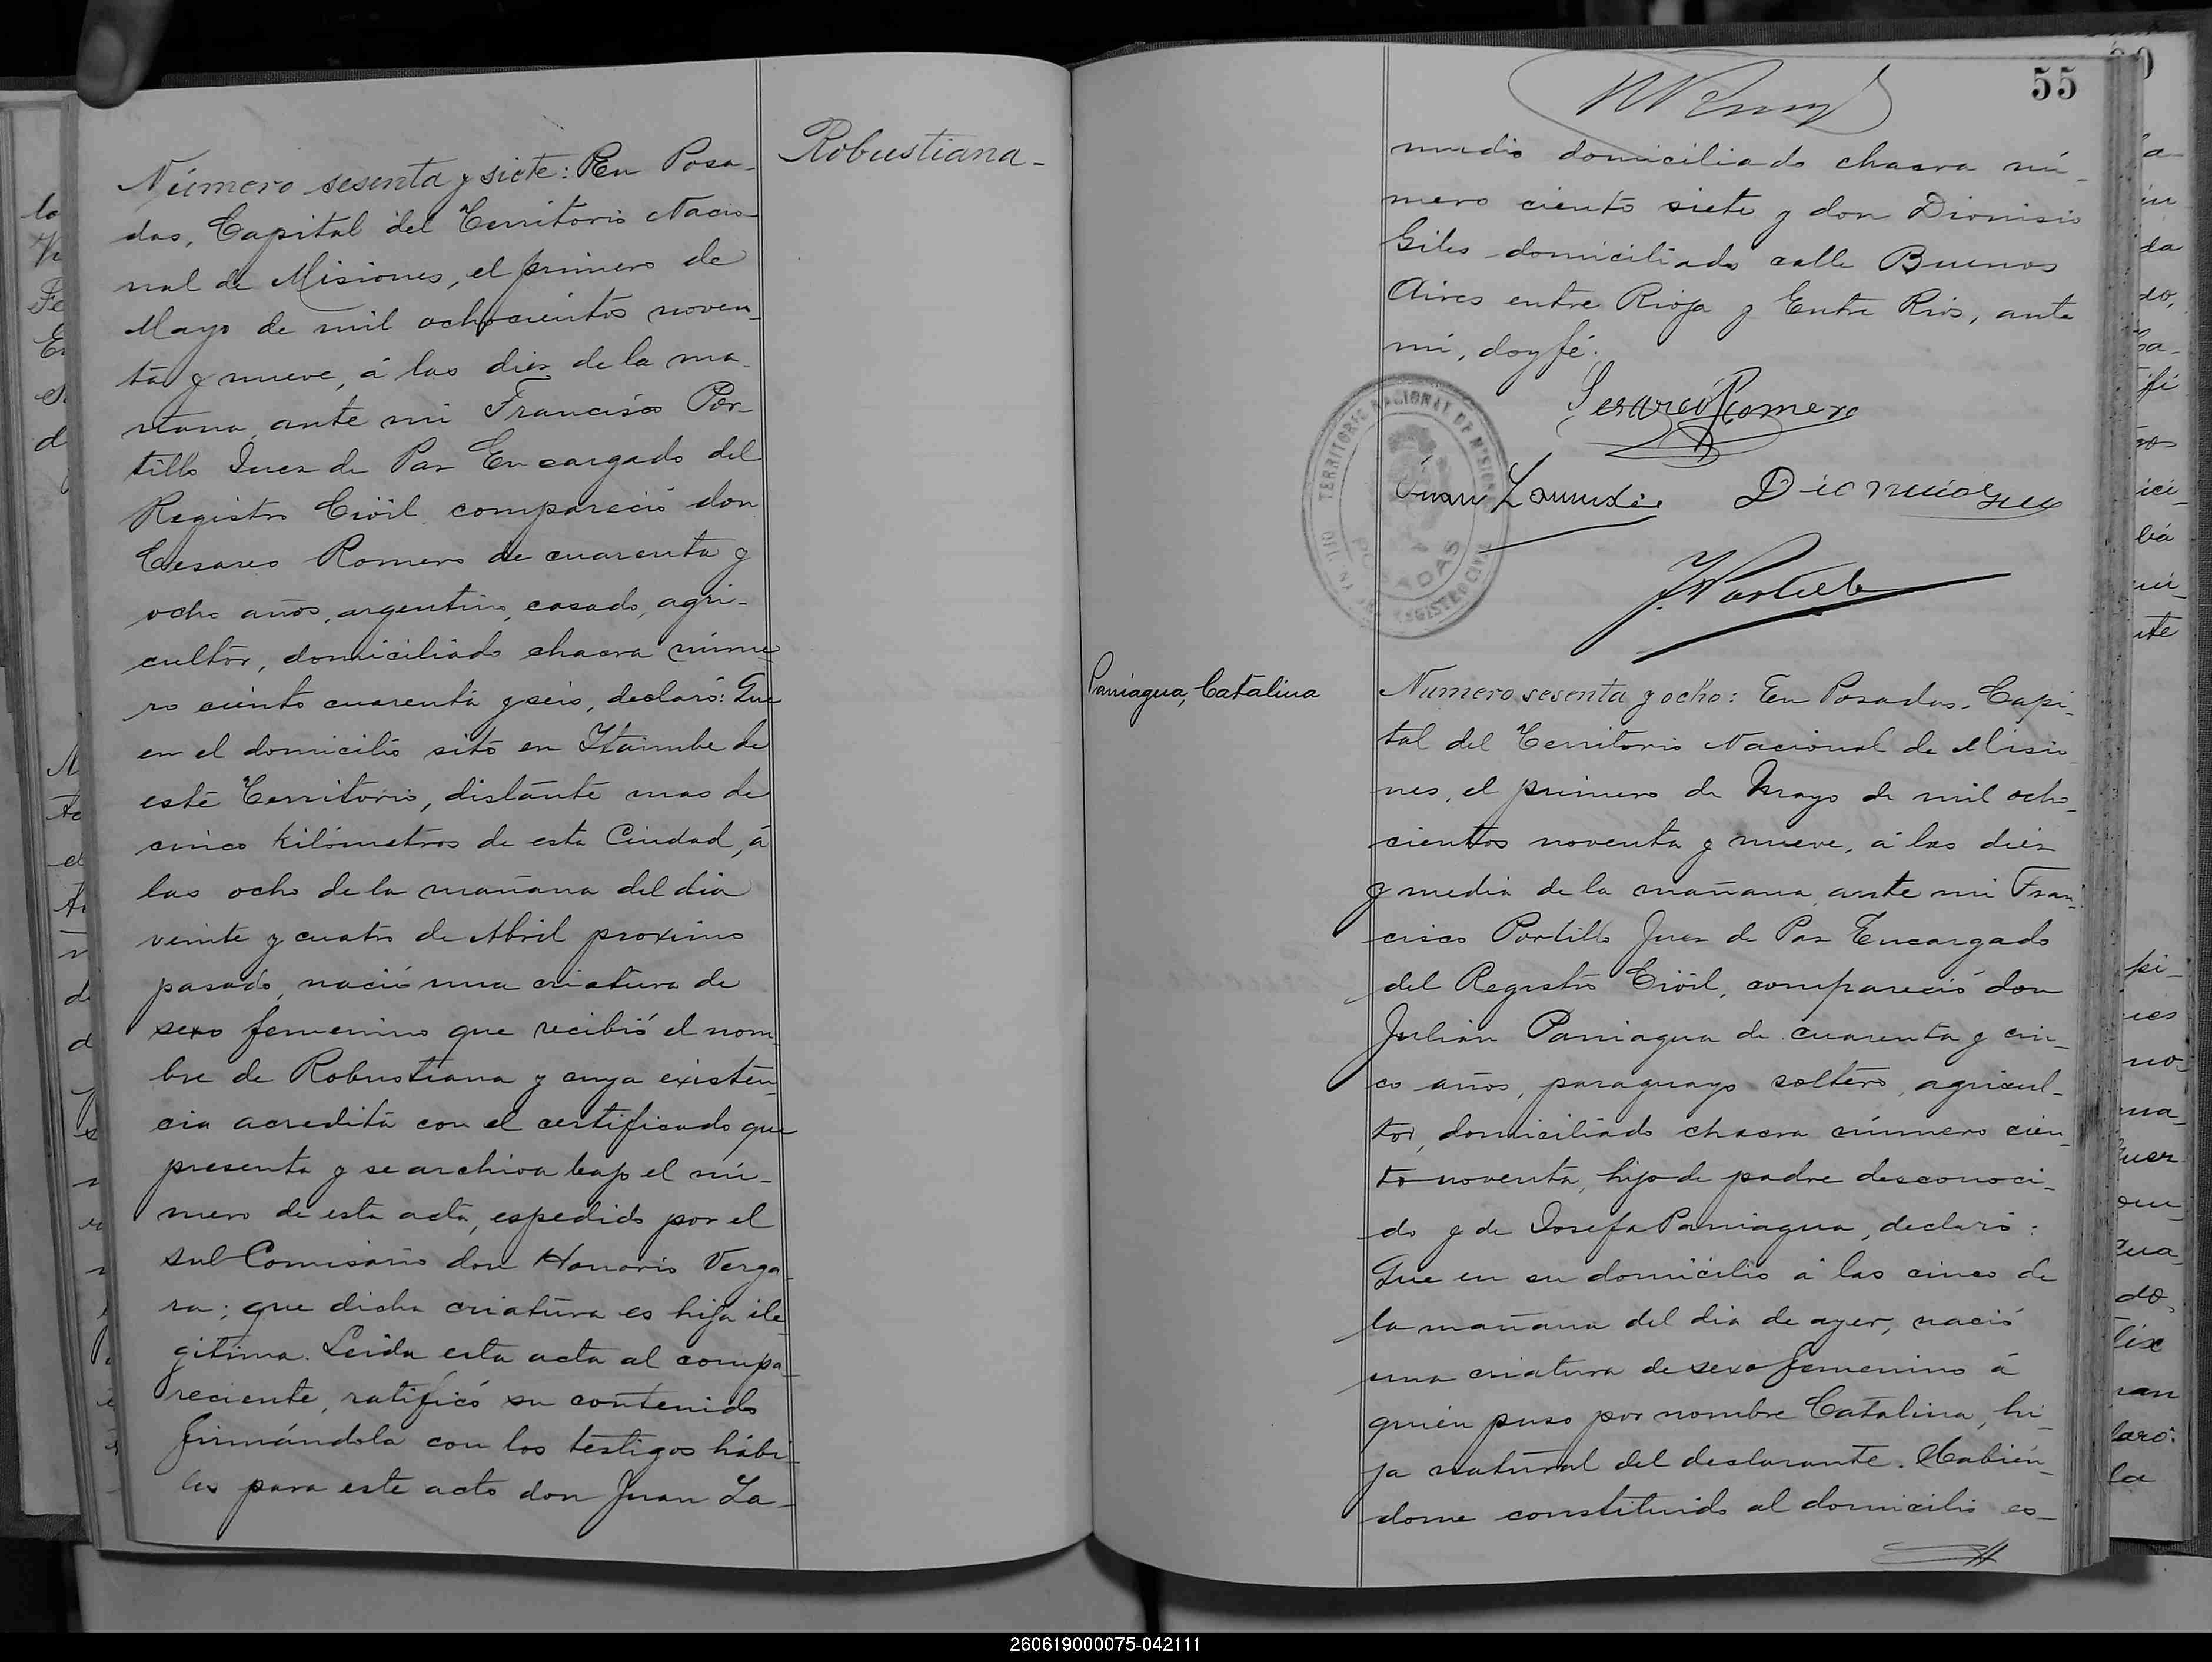 Número sesenta y siete: En Posa-
das, Capital del Territorio Nacio-
nal de Misiones, el primero de
Mayo de mil ochocientos noven-
ta y nueve, á las diez de la ma-
ñana, ante mi Francisco Por-
tillo Juez de Paz Encargado del
Registro Civil, compareció don
Cesareo Romero de cuarenta y
ocho años, argentino, casado, agri-
cultor, domiciliado chacra núme-
ro ciento cuarenta y seis, declaró: Que
en el domicilio sito en Itaimbe de
este Territorio, distante mas de
cinco kilómetros de esta Ciudad, á
las ocho de la mañana del dia
veinte y cuatro de Abril proximo
pasado, nació una criatura de
sexo femenino que recibió el nom-
bre de Robustiana y cuya existen-
cia acredita con el certificado que
presenta y se archiva bajo el nú-
mero de esta acta, espedido por el
sub Comisario don Honorio Verga-
ra; que dicha criatura es hija ile-
gitima. Leida esta acta al compa-
reciente, ratificó su contenido
firmándola con los testigos hábi-
les para este acto don Juan La-
Robustiana-
55
mudio domiciliado chacra nú-
mero ciento siete y don Dionisio
Giles domiciliado calle Buenos
Aires entre Rioja y Entre Rios, ante
mi, doy fé.
Sesareo Romero
Juan Lamudio
F. Portillo
TERRITORIO NACIONAL DE MISIONES
POSADAS
REGISTRO CIVIL
Paniagua, Catalina
Número sesenta y ocho: En Posadas, Capi-
tal del Territorio Nacional de Misio-
nes, el primero de Mayo de mil ocho-
cientos noventa y nueve, á las diez
y media de la mañana, ante mi Fran-
cisco Portillo Juez de Paz Encargado
del Registro Civil, compareció don
Julián Paniagua de cuarenta y cin-
co años, paraguayo soltero, agricul-
tor, domiciliado chacra número cien-
to noventa, hijo de padre desconoci-
do y de Josefa Paniagua, declaró:
Que en su domicilio á las cinco de
la mañana del dia de ayer, nació
una criatura de sexo femenino á
quién puso por nombre Catalina, hi-
ja natural del declarante. Habién-
dome constituido al domicilio es-
260619000075-042111